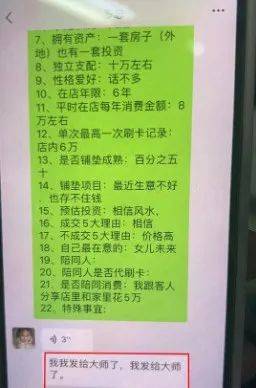 7、拥有资产：一套房子（外
地）也有一套投资
8、独立支配：十万左右
9、性格爱好：话不多
10、在店年限：6年
11、平时在店每年消费金额：8
万左右
12、单次最高一次刷卡记录：
店内6万
13、是否铺垫成熟：百分之五
十
14、铺垫项目：最近生意不好
．也存不住钱
15、预估投资：相信风水，
16、成交5大理由：相信
17、不成交5大理由：价格高
18、自己最在意的：女儿未来
19、陪同人：
20、陪同人是否代刷卡：
21、是否陪同消费：我跟客人
分享店里和家里花5万
22、特殊事宜：
3"
我我发给大师了，我发给大师
了。